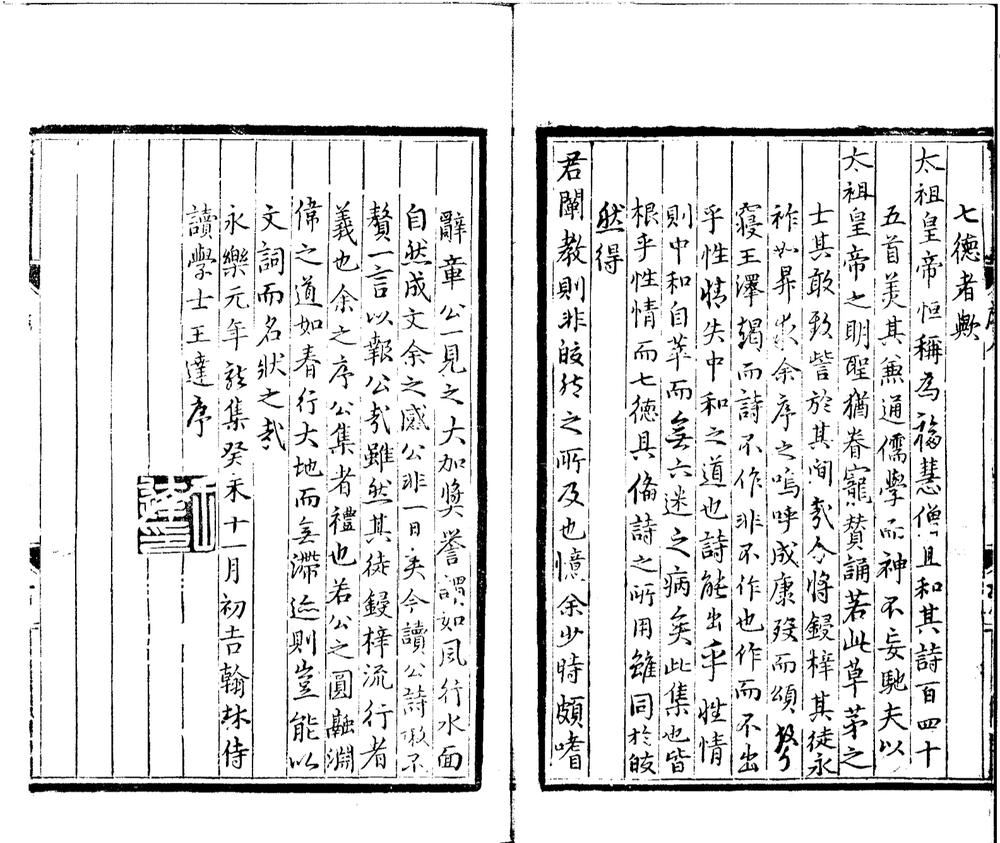 七德者歟
太祖皇帝恒稱為福慧僧且和其詩百四十
五首美其兼通儒學而神不妄馳夫以
太祖皇帝之明聖猶眷寵贊誦若此草茅之
士其敢致訾於其間哉今將鋟梓其徒永
祚如昇求余序之嗚呼成康歿而頌聲
寢王澤竭而詩不作非不作也作而不出
乎性情失中和之道也詩能出乎性情
則中和自萃而無六迷之病矣此集也皆
根乎性情而七德具備詩之所用雖同於皎
然得
君闡教則非皎然之所及也憶余少時頗嗜
辭章公一見之大加獎譽謂如風行水面
自然成文余之感公非一日矣今讀公詩敢不
贅一言以報公哉雖然其徒鋟梓流行者
義也余之序公集者禮也若公之圓融淵
偉之道如春行大地而無滯迹則豈能以
文詞而名狀之哉
永樂元年龍集癸未十一月初吉翰林侍
讀學士王達序